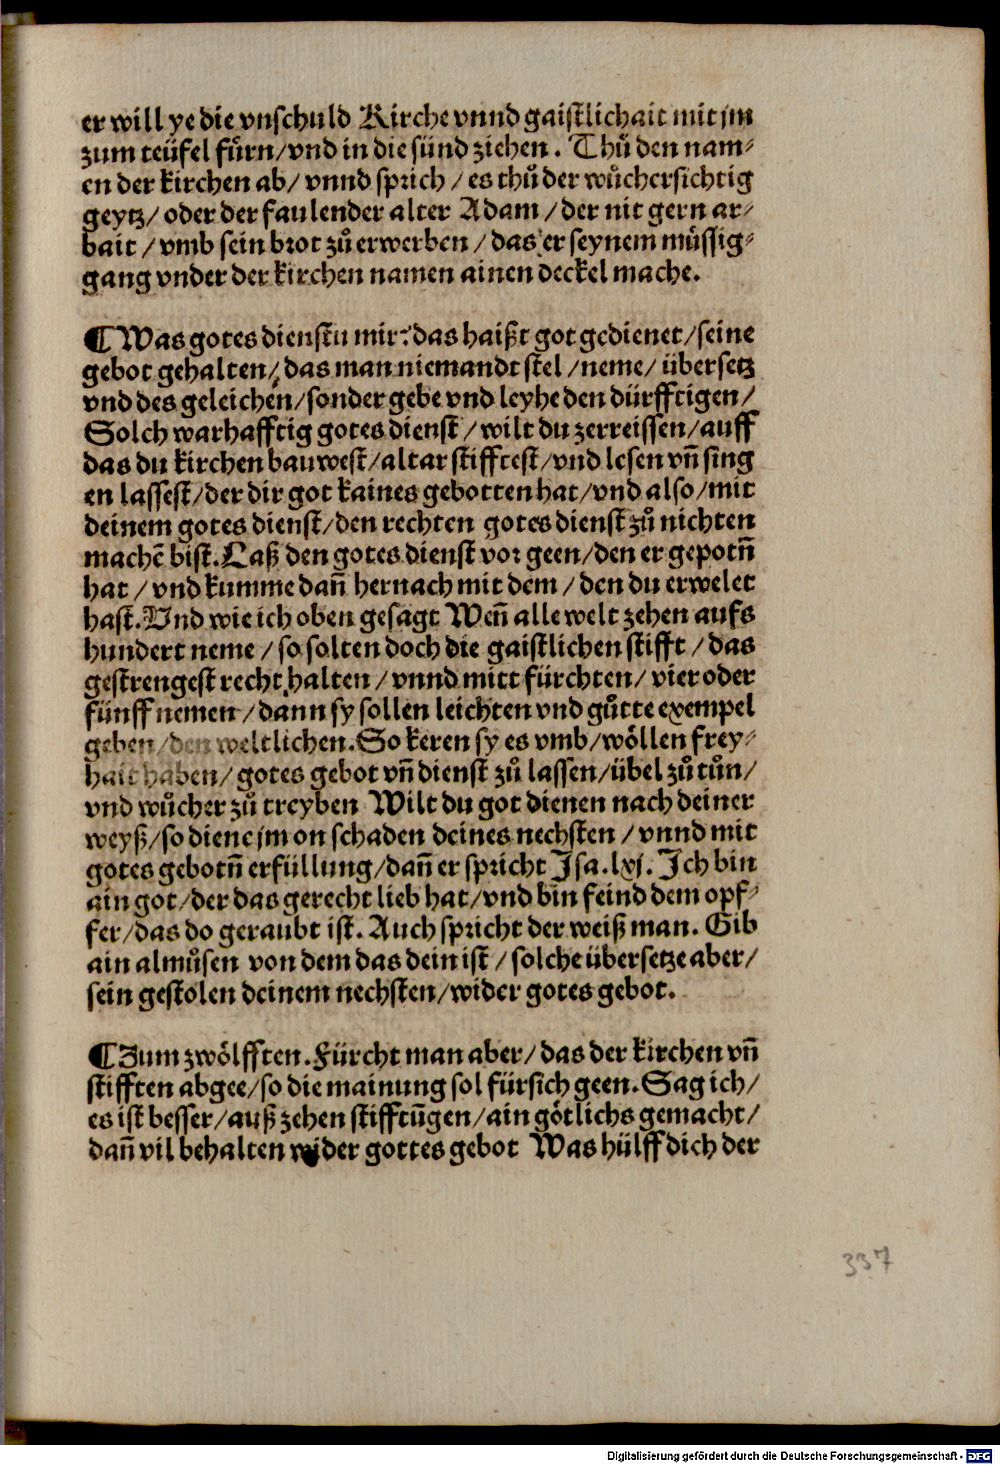 er will ye die vnschuld Kirche vnnd gaistlichait mit jm
zum teüfel fürn/vnd in die sünd ziehen. Thů den nam⸗
en der kirchen ab/ vnnd sprich / es thů der wůchersichtig
geytz/ oder der faulender alter Adam / der nit gern ar⸗
bait / vmb sein brot zů erwerben / das er seynem müssig⸗
gang vnder der kirchen namen ainen deckel mache.
¶ Was gotes dienstu mir? das haißt got gedienet/seine
gebot gehalten/ das man niemandt stel /neme/ übersetz
vnd des geleichen/sonder gebe vnd leyhe den dürfftigen/
Solch warhafftig gotes dienst / wilt du zerreissen/auff
das du kirchen bauwest/altar stifftest/vnd lesen vñ sing
en lassest/der dir got kaines gebotten hat/vnd also/mit
deinem gotes dienst/den rechten gotes dienst zů nichten
machē bist. Laß den gotes dienst vor geen/den er gepotñ
hat / vnd kumme dañ hernach mit dem / den du erwelet
hast. Vnd wie ich oben gesagt Weñ alle welt zehen aufs
hundert neme / so solten doch die gaistlichen stifft / das
gestrengest recht halten / vnnd mitt fürchten/ vier oder
fünff nemen /dann sy sollen leichten vnd gůtte exempel
geben/den weltlichen. So keren sy es vmb/wöllen frey⸗
hait haben/ gotes gebot vñ dienst zů lassen/übel zů tůn/
vnd wůcher zů treyben Wilt du got dienen nach deiner
weyß/so diene jm on schaden deines nechsten / vnnd mit
gotes gebotñ erfüllung/dañ er spricht Jsa. lxj. Jch bin
ain got/der das gerecht lieb hat/vnd bin feind dem opf⸗
fer/das do geraubt ist. Auch spricht der weiß man. Gib
ain almůsen von dem das dein ist / solche übersetze aber/
sein gestolen deinem nechsten/wider gotes gebot.
¶ Zum zwölfften. Fürcht man aber/ das der kirchen vñ
stifften abgee/so die mainung sol fürsich geen. Sag ich/
es ist besser/auß zehen stifftũgen/ain götlichs gemacht/
dañ vil behalten wider gottes gebot Was hülff dich der
337
Digitalisierung gefördert durch die Deutsche Forschungsgemeinschaft - DFG